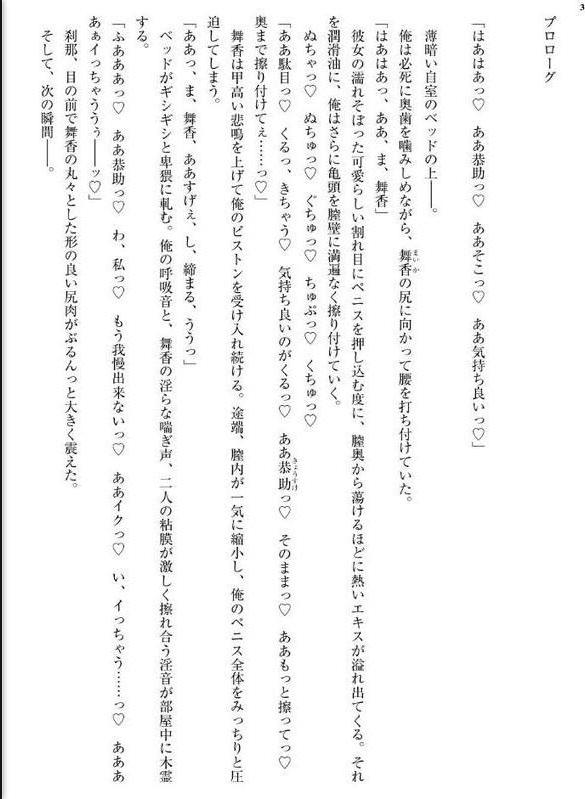 3
プロローグ
「はあはあっ♡　ああ恭助っ♡　ああそこっ♡　ああ気持ち良いっ♡」
薄暗い自室のベッドの上――。
俺は必死に奥歯を噛みしめながら、舞香の尻に向かって腰を打ち付けていた。
「はあはあっ、ああ、ま、舞香」
彼女の濡れそぼった可愛らしい割れ目にペニスを押し込む度に、膣奥から蕩けるほどに熱いエキスが溢れ出てくる。それ
を潤滑油に、俺はさらに亀頭を膣壁に満遍なく擦り付けていく。
ぬちゃっ♡　ぬちゅっ♡　ぐちゅっ♡　ちゅぷっ♡　くちゅっ♡
「ああ駄目っ♡　くるっ、きちゃう♡　気持ち良いのがくるっ♡　ああ恭助っ♡　そのままっ♡　ああもっと擦ってっ♡
奥まで擦り付けてぇ……っ♡」
舞香は甲高い悲鳴を上げて俺のピストンを受け入れ続ける。途端、膣内が一気に縮小し、俺のペニス全体をみっちりと圧
迫してしまう。
「ああっ、ま、舞香、ああすげぇ、し、締まる、ううっ」
ベッドがギシギシと卑猥に軋む。俺の呼吸音と、舞香の淫らな喘ぎ声、二人の粘膜が激しく擦れ合う淫音が部屋中に木霊
する。
「ふああぁっ♡　ああ恭助っ♡　わ、私っ♡　もう我慢出来ないっ♡　ああイクっ♡　い、イっちゃう……っ♡　あああ
あぁイっちゃううぅ――ッ♡」
刹那、目の前で舞香の丸々とした形の良い尻肉がぶるんっと大きく震えた。
そして、次の瞬間――。